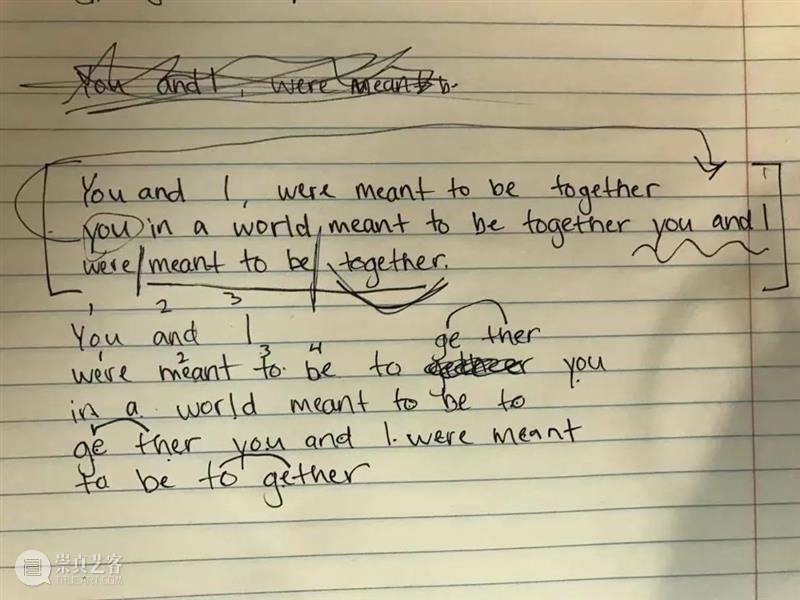 You and I, were meant b.
You and I, were meant to be together
you in a world, meant to be together you and I
were/meant to be/together.
1 2 3
You and I
1 2 3 4 ge ther
were meant to be to you
in a world meant to be to
ge ther you and I. were meant
to be to gether
崇真艺客
TRUEART.COM